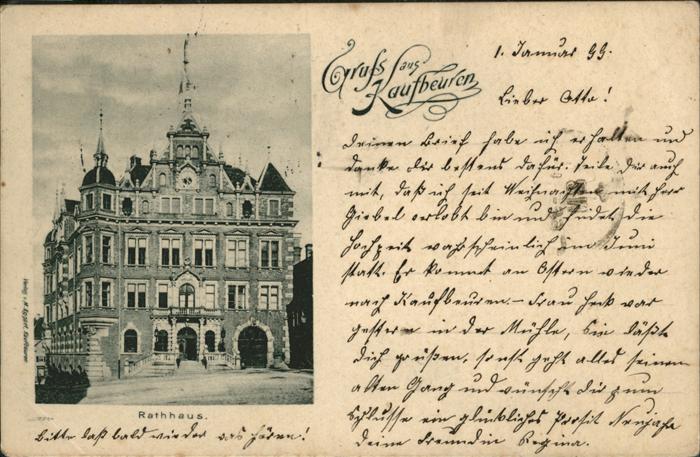 Gruss aus
Kaufbeuren
1. Januar 99.
Lieber Otto!
Deinen Brief habe ich erhalten und
danke Dir bestens dafür. Teile Dir auch
mit, daß ich seit Weihnachten mit Herr
Giebel verlobt bin und findet die
Hochzeit wahrscheinlich im Juni
statt. Er kommt an Ostern wieder
nach Kaufbeuren – Frau Heck war
gestern in der Mühle, Sie läßt
Dich grüßen, sonst geht alles seinen
alten Gang und wünscht Dir zum
Schlusse ein glückliches Prosit Neujahr
Deine Freundin Regina.
Rathhaus.
Bitte laß bald wieder was hören!
Kaufbeuren